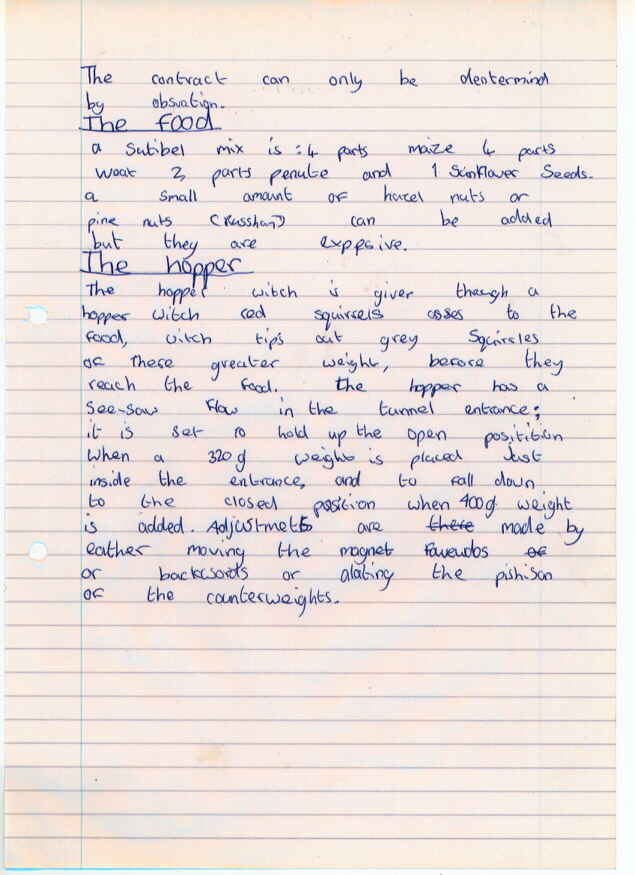 The contract can only be dentermind
by obsvation.
The food
a Sutibel mix is : 4 parts maize 4 parts
weat 2 parts penute and 1 Sunflaver Seeds.
a small amount of hazel nuts or
pine nuts (Russhan) can be added
but they are exppsive.
The hopper
The hopper witch is giver though a
hopper witch red squirrels coses to the
food, witch tips out grey Squirrles
of there greater weight, before they
reach the food. the hopper has a
See-saw Flow in the tunnel entrance;
it is set to hold up the open positition
when a 320g weight is placed Just
inside the entrance, and to fall down
to the closed position when 400g weight
is added. Adjustmets are there made by
eather moving the magnet of
or backwords or alating the pishison
of the counterweights.